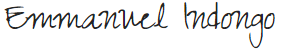 Emmanuel Indongo